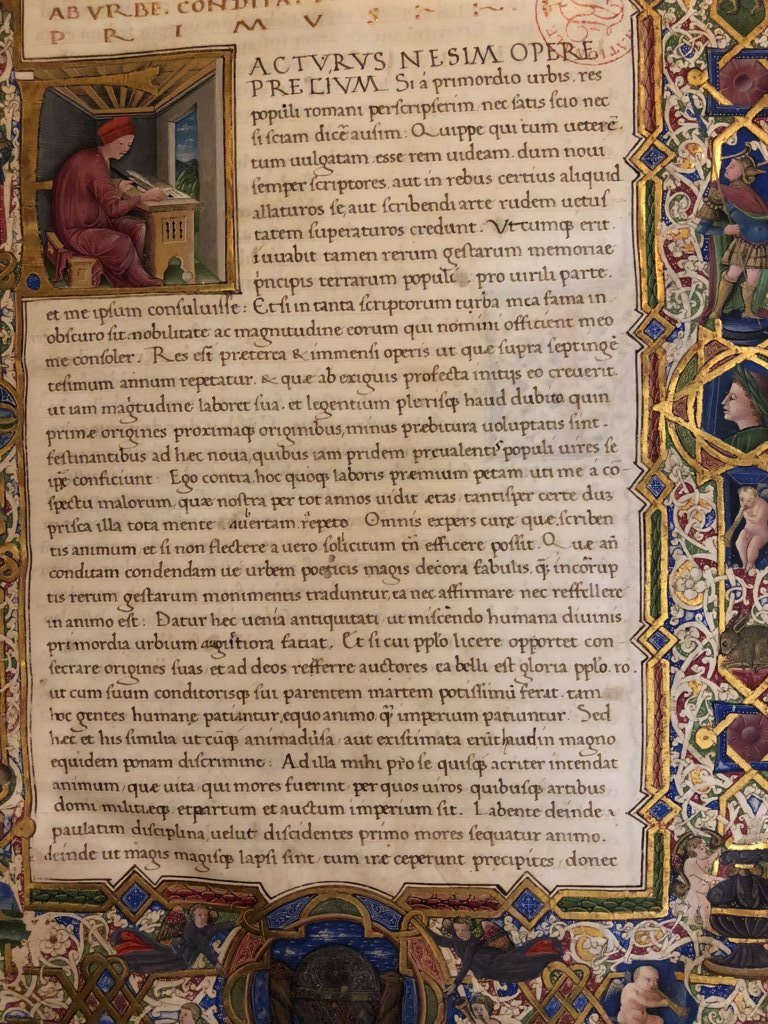 AB VRBE. CONDITA.
PRIMVS
ACTVRVS NE SIM OPERE
PRETIVM. Si á primordio urbis. res
populi romani perscripserim. nec satis scio nec
si sciam dicẽ ausim: Quippe qui tum ueterẽ.
tum uulgatam esse rem uideam. dum noui
semper scriptores, aut in rebus certius aliquid
allaturos se, aut scribendi arte rudem uetus
tatem superaturos credunt. Vtcumq; erit.
iuuabit tamen rerum gestarum memoriae
p̃ncipis terrarum populi pro uirili parte.
et me ipsum consuluisse: Et si in tanta scriptorum turba mea fama in
obscuro sit. nobilitate ac magnitudine eorum qui nomini officient meo
me consoler. Res est præterea & immensi operis ut quæ supra septingẽ
tesimum annum repetatur. & quæ ab exiguis profecta initiis eo creuerit.
ut iam magtudine laboret sua. et legentium plerisq; haud dubito quin
primæ origines proximaq; originibus, minus præbitura uoluptatis sint.
festinantibus ad hæc noua, quibus iam pridem preualentis populi uires se
ipse conficiunt: Ego contra, hoc quoq; laboris præmium petam. uti me á cõ
spectu malorum, quæ nostra per tot annos uidit ætas, tantisper certe dum
prisca illa tota mente auertam repeto. Omnis expers curæ quæ scriben
tis animum et si non flectere a uero solicitum tñ efficere possit. Quæ añ
conditam condendam ue urbem poeticis magis decora fabulis, q̃ incorup
tis rerum gestarum monimentis traduntur, ea nec affirmare nec reffellere
in animo est: Datur hæc uenia antiquitati ut miscendo humana diuinis
primordia urbium augustiora faciat. Et si cui pplo licere opportet con
secrare origines suas et ad deos refferre auctores ea belli est gloria pplo. ro.
ut cum suum conditorisq; sui parentem martem potissimũ ferat. tam
hoc gentes humanę patiantur, equo animo q̃ imperium patiuntur. Sed
hæc et his similia ut cũq; animaduersa aut existimata erũt haud in magno
equidem ponam discrimine: Ad illa mihi pro se quisq; acriter intendat
animum, quæ uita qui mores fuerint, per quos uiros quibusq; artibus
domi militiæq; et partum et auctum imperium sit. Labente deinde
paulatim disciplina, uelut discidentes primo mores sequatur animo.
deinde ut magis magisq; lapsi sint, tum iræ ceperunt precipites, donec